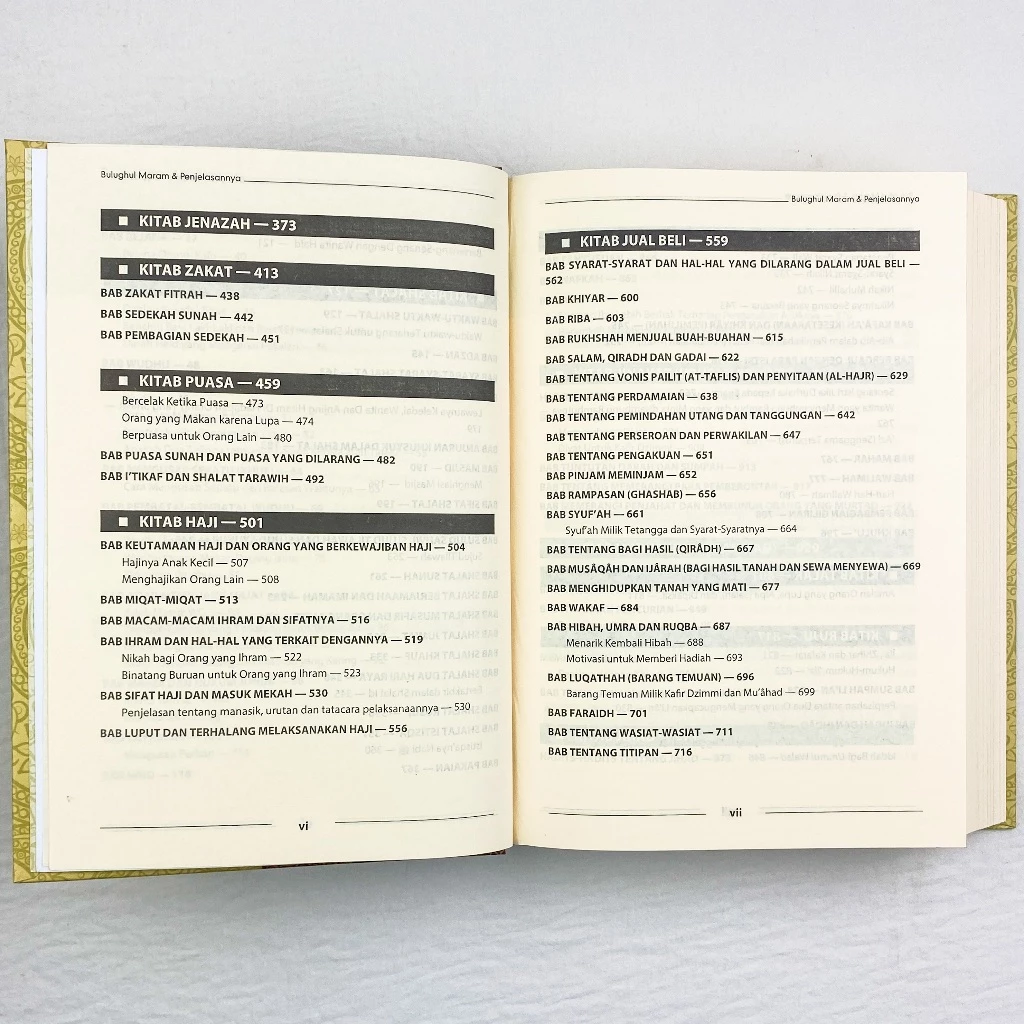 Bulughul Maram & Penjelasannya
■ KITAB JENAZAH — 373
■ KITAB ZAKAT — 413
BAB ZAKAT FITRAH — 438
BAB SEDEKAH SUNAH — 442
BAB PEMBAGIAN SEDEKAH — 451
■ KITAB PUASA — 459
Bercelak Ketika Puasa — 473
Orang yang Makan karena Lupa — 474
Berpuasa untuk Orang Lain — 480
BAB PUASA SUNAH DAN PUASA YANG DILARANG — 482
BAB I'TIKAF DAN SHALAT TARAWIH — 492
■ KITAB HAJI — 501
BAB KEUTAMAAN HAJI DAN ORANG YANG BERKEWAJIBAN HAJI — 504
Hajinya Anak Kecil — 507
Menghajikan Orang Lain — 508
BAB MIQAT-MIQAT — 513
BAB MACAM-MACAM IHRAM DAN SIFATNYA — 516
BAB IHRAM DAN HAL-HAL YANG TERKAIT DENGANNYA — 519
Nikah bagi Orang yang Ihram — 522
Binatang Buruan untuk Orang yang Ihram — 523
BAB SIFAT HAJI DAN MASUK MEKAH — 530
Penjelasan tentang manasik, urutan dan tatacara pelaksanaannya — 530
BAB LUPUT DAN TERHALANG MELAKSANAKAN HAJI — 556
vi
Bulughul Maram & Penjelasannya
■ KITAB JUAL BELI — 559
BAB SYARAT-SYARAT DAN HAL-HAL YANG DILARANG DALAM JUAL BELI —
562
BAB KHIYAR — 600
BAB RIBA — 603
BAB RUKHSHAH MENJUAL BUAH-BUAHAN — 615
BAB SALAM, QIRADH DAN GADAI — 622
BAB TENTANG VONIS PAILIT (AT-TAFLIS) DAN PENYITAAN (AL-HAJR) — 629
BAB TENTANG PERDAMAIAN — 638
BAB TENTANG PEMINDAHAN UTANG DAN TANGGUNGAN — 642
BAB TENTANG PERSEROAN DAN PERWAKILAN — 647
BAB TENTANG PENGAKUAN — 651
BAB PINJAM MEMINJAM — 652
BAB RAMPASAN (GHASHAB) — 656
BAB SYUF'AH — 661
Syuf'ah Milik Tetangga dan Syarat-Syaratnya — 664
BAB TENTANG BAGI HASIL (QIRÂDH) — 667
BAB MUSÂQÂH DAN IJÂRAH (BAGI HASIL TANAH DAN SEWA MENYEWA) — 669
BAB MENGHIDUPKAN TANAH YANG MATI — 677
BAB WAKAF — 684
BAB HIBAH, UMRA DAN RUQBA — 687
Menarik Kembali Hibah — 688
Motivasi untuk Memberi Hadiah — 693
BAB LUQATHAH (BARANG TEMUAN) — 696
Barang Temuan Milik Kafir Dzimmi dan Mu'âhad — 699
BAB FARAIDH — 701
BAB TENTANG WASIAT-WASIAT — 711
BAB TENTANG TITIPAN — 716
vii